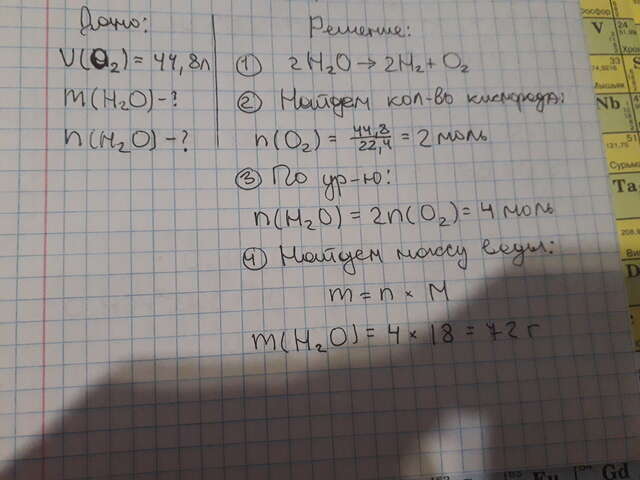 Дано:
V(O₂) = 44,8л
m(H₂O) - ?
n(H₂O) - ?
Решение:
① 2H₂O → 2H₂ + O₂
② Найдем кол-во кислорода:
n(O₂) = 44,8/22,4 = 2 моль
③ По ур-ю:
n(H₂O) = 2n(O₂) = 4 моль
④ Найдем массу воды:
m = n × M
m(H₂O) = 4 × 18 = 72 г
V
Nb
Ta
Gd